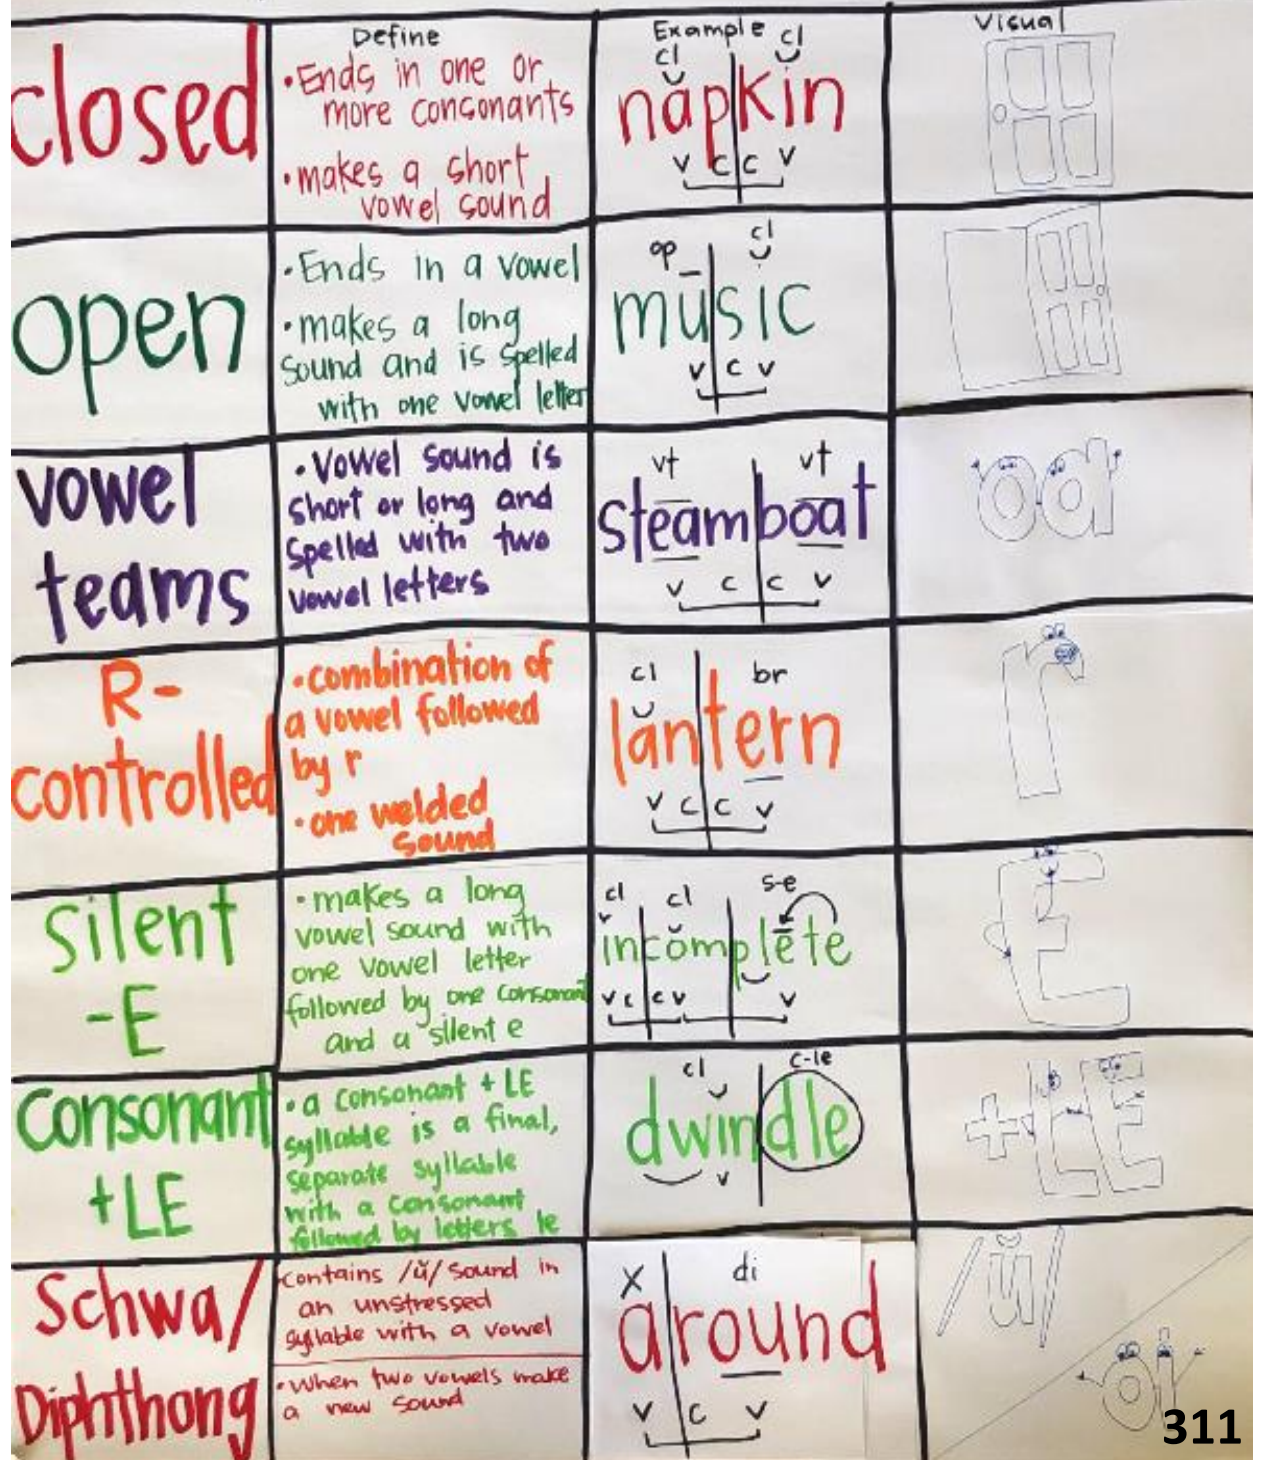 Define
Example
Visual
closed
• Ends in one or
more consonants
• makes a short
vowel sound
cl
cl
napkin
v c c v
open
• Ends in a vowel
• makes a long
sound and is spelled
with one vowel letter
op
cl
music
v c v
vowel
teams
• Vowel sound is
short or long and
spelled with two
vowel letters
vt
vt
steamboat
v c c v
oa
R-
controlled
• combination of
a vowel followed
by r
• one welded
sound
cl
br
lantern
v c c v
r
Silent
-E
• makes a long
vowel sound with
one vowel letter
followed by one consonant
and a silent e
cl
cl
s-e
incomplete
v c c v v
E
Consonant
+LE
• a consonant + LE
syllable is a final,
separate syllable
with a consonant
followed by letters le
cl
c-le
dwindle
v
+LE
Schwa/
Diphthong
contains /ŭ/ sound in
an unstressed
syllable with a vowel
• When two vowels make
a new sound
x
di
around
v c v
/ŭ/
oi
311